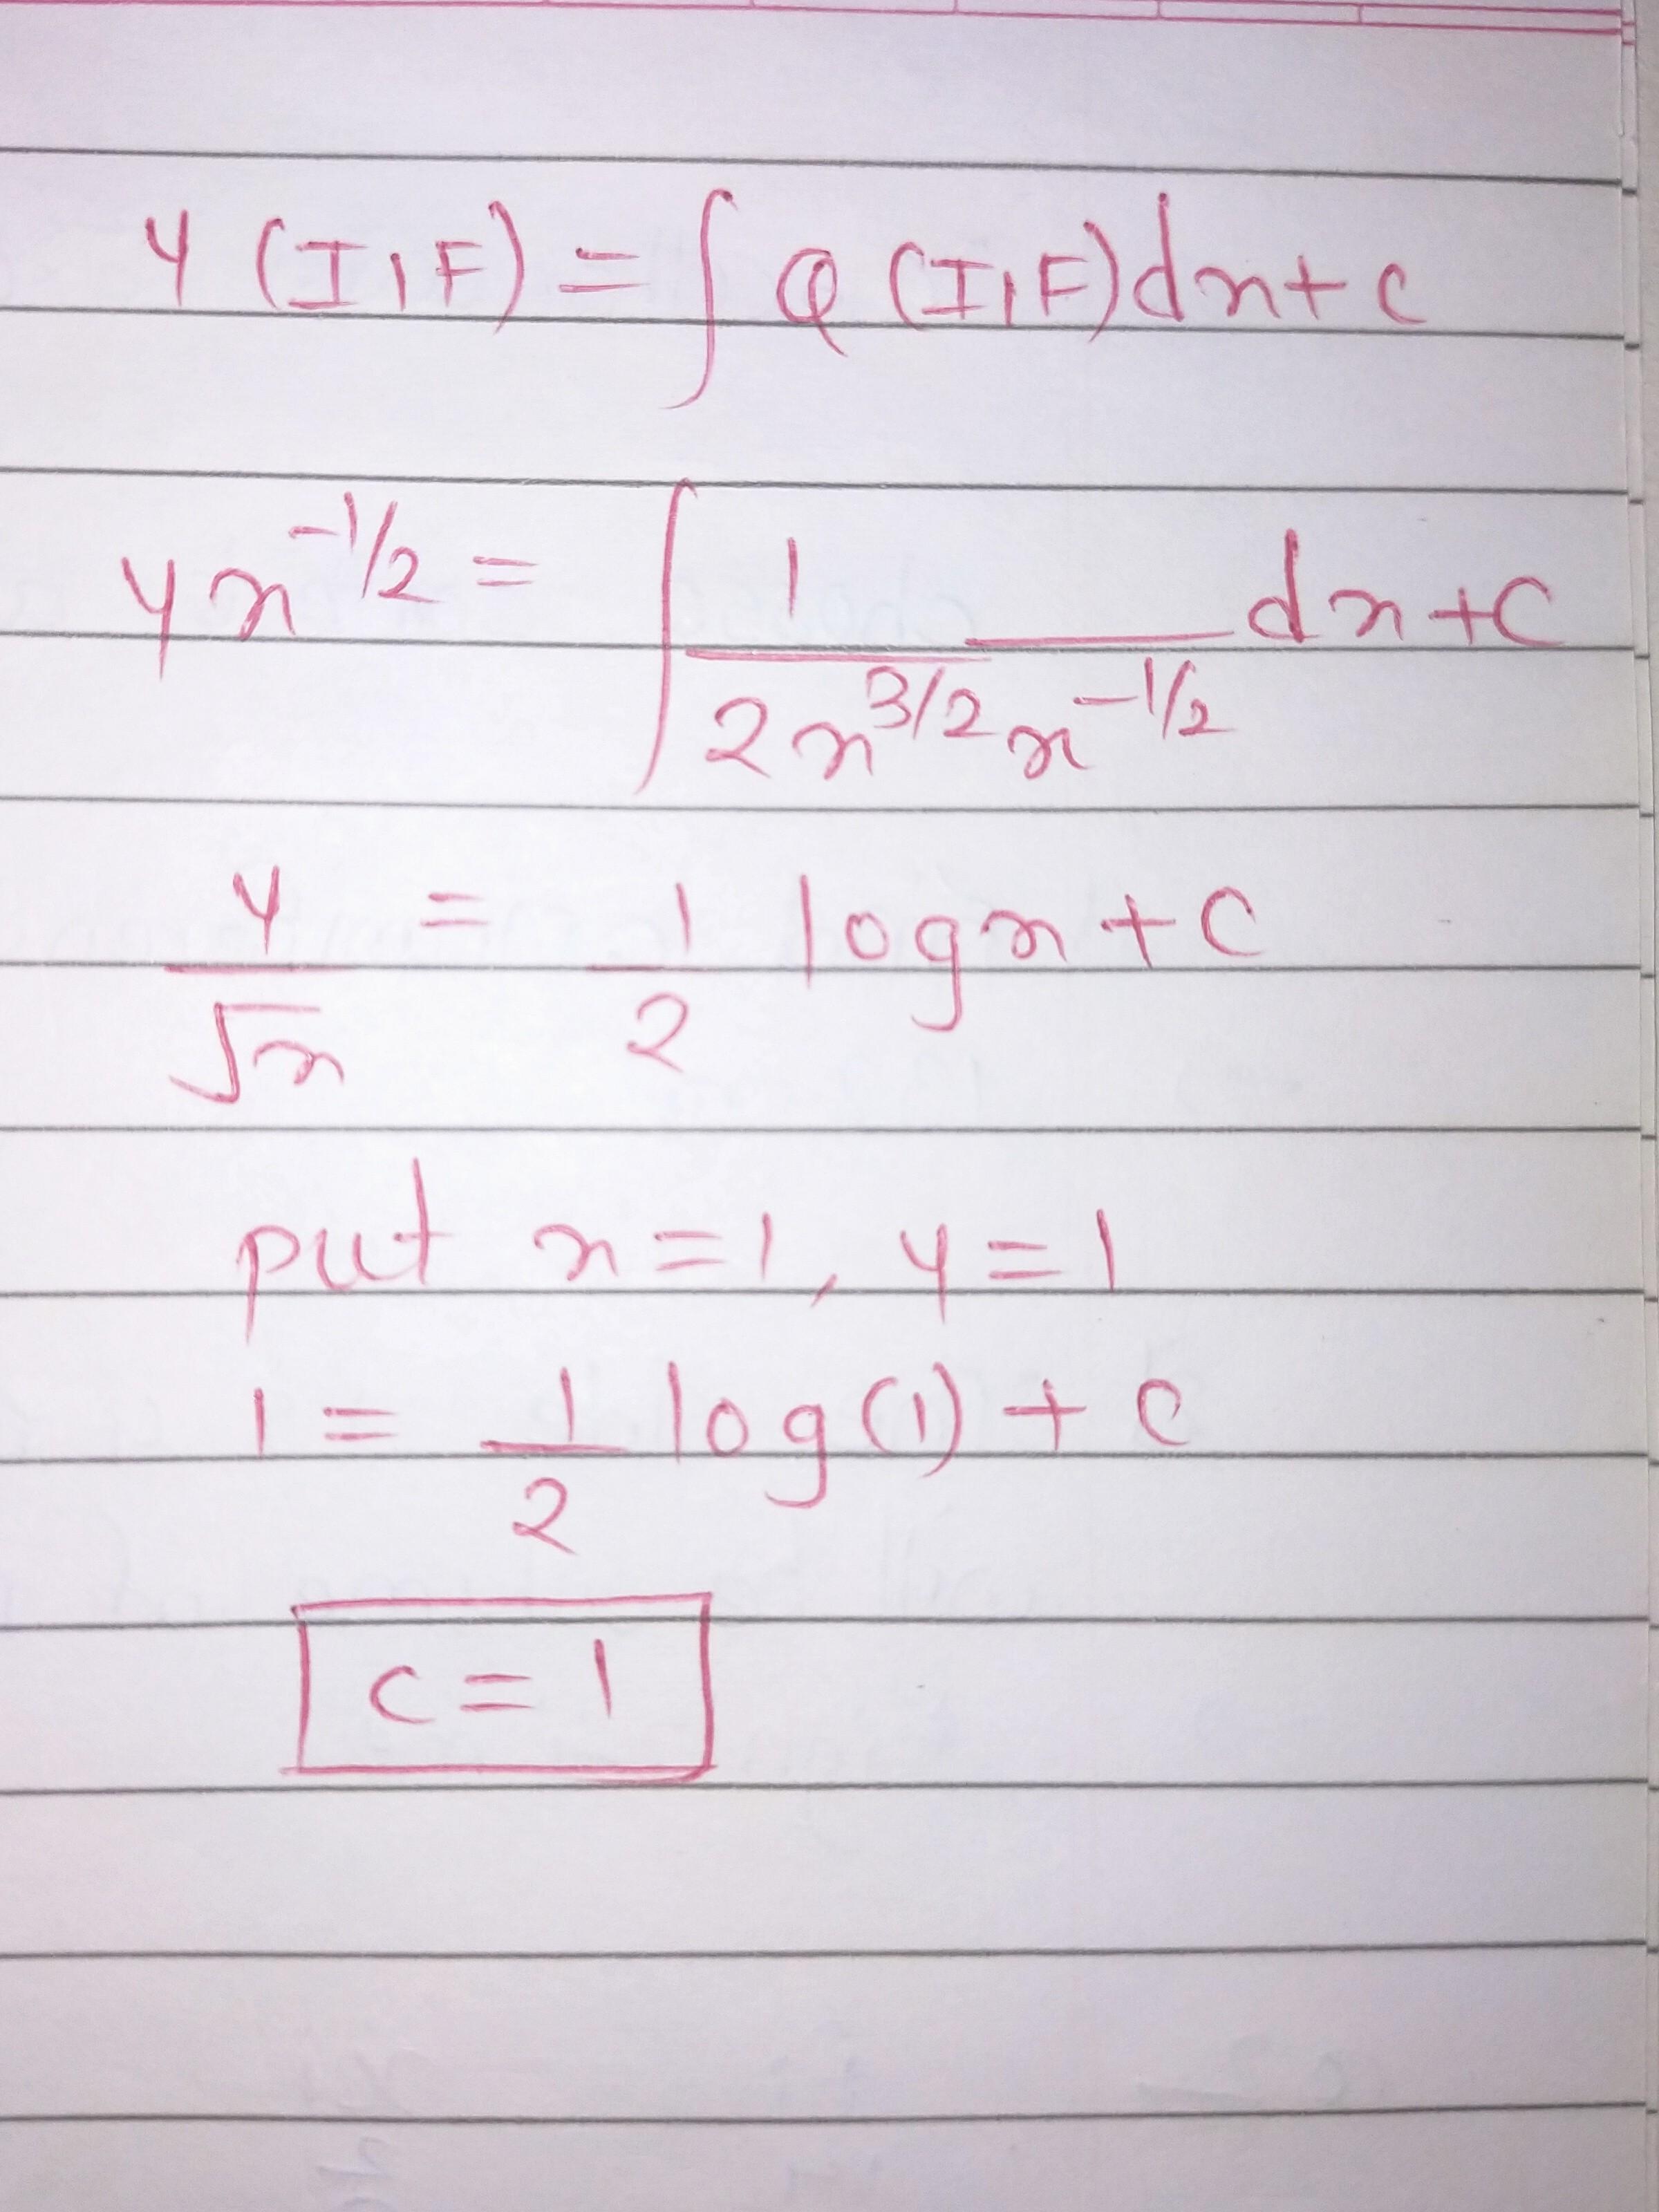 y (I.F) = ∫ Q (I.F) dx + c
y x^{-1/2} = ∫ \frac{1}{2x^{3/2} x^{-1/2}} dx + C
\frac{y}{√x} = \frac{1}{2} log x + C
put x = 1, y = 1
1 = \frac{1}{2} log(1) + C
C = 1